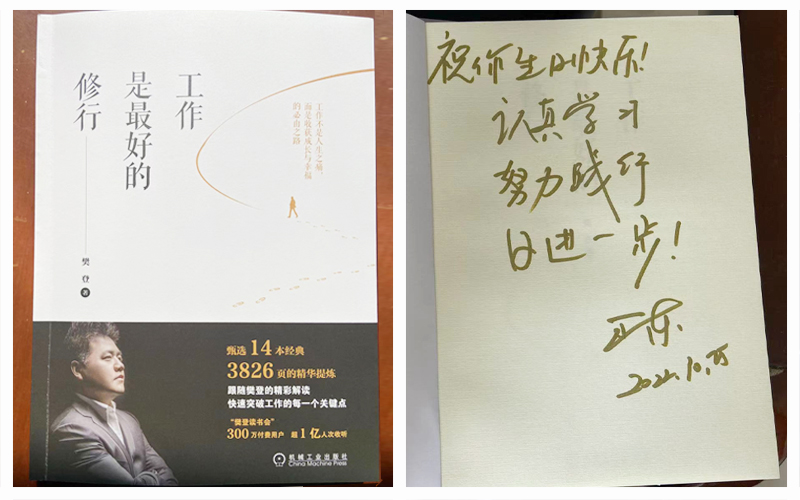 工作
是最好的
修行
工作不是人生之痛,
而是收获成长与幸福
的必由之路
樊登 著
甄选14本经典
3826页的精华提炼
跟随樊登的精彩解读
快速突破工作的每一个关键点
“樊登读书会”
300万付费用户 超1亿人次收听
机械工业出版社
China Machine Press
祝你生日快乐!
认真学习
努力践行
日进一步!